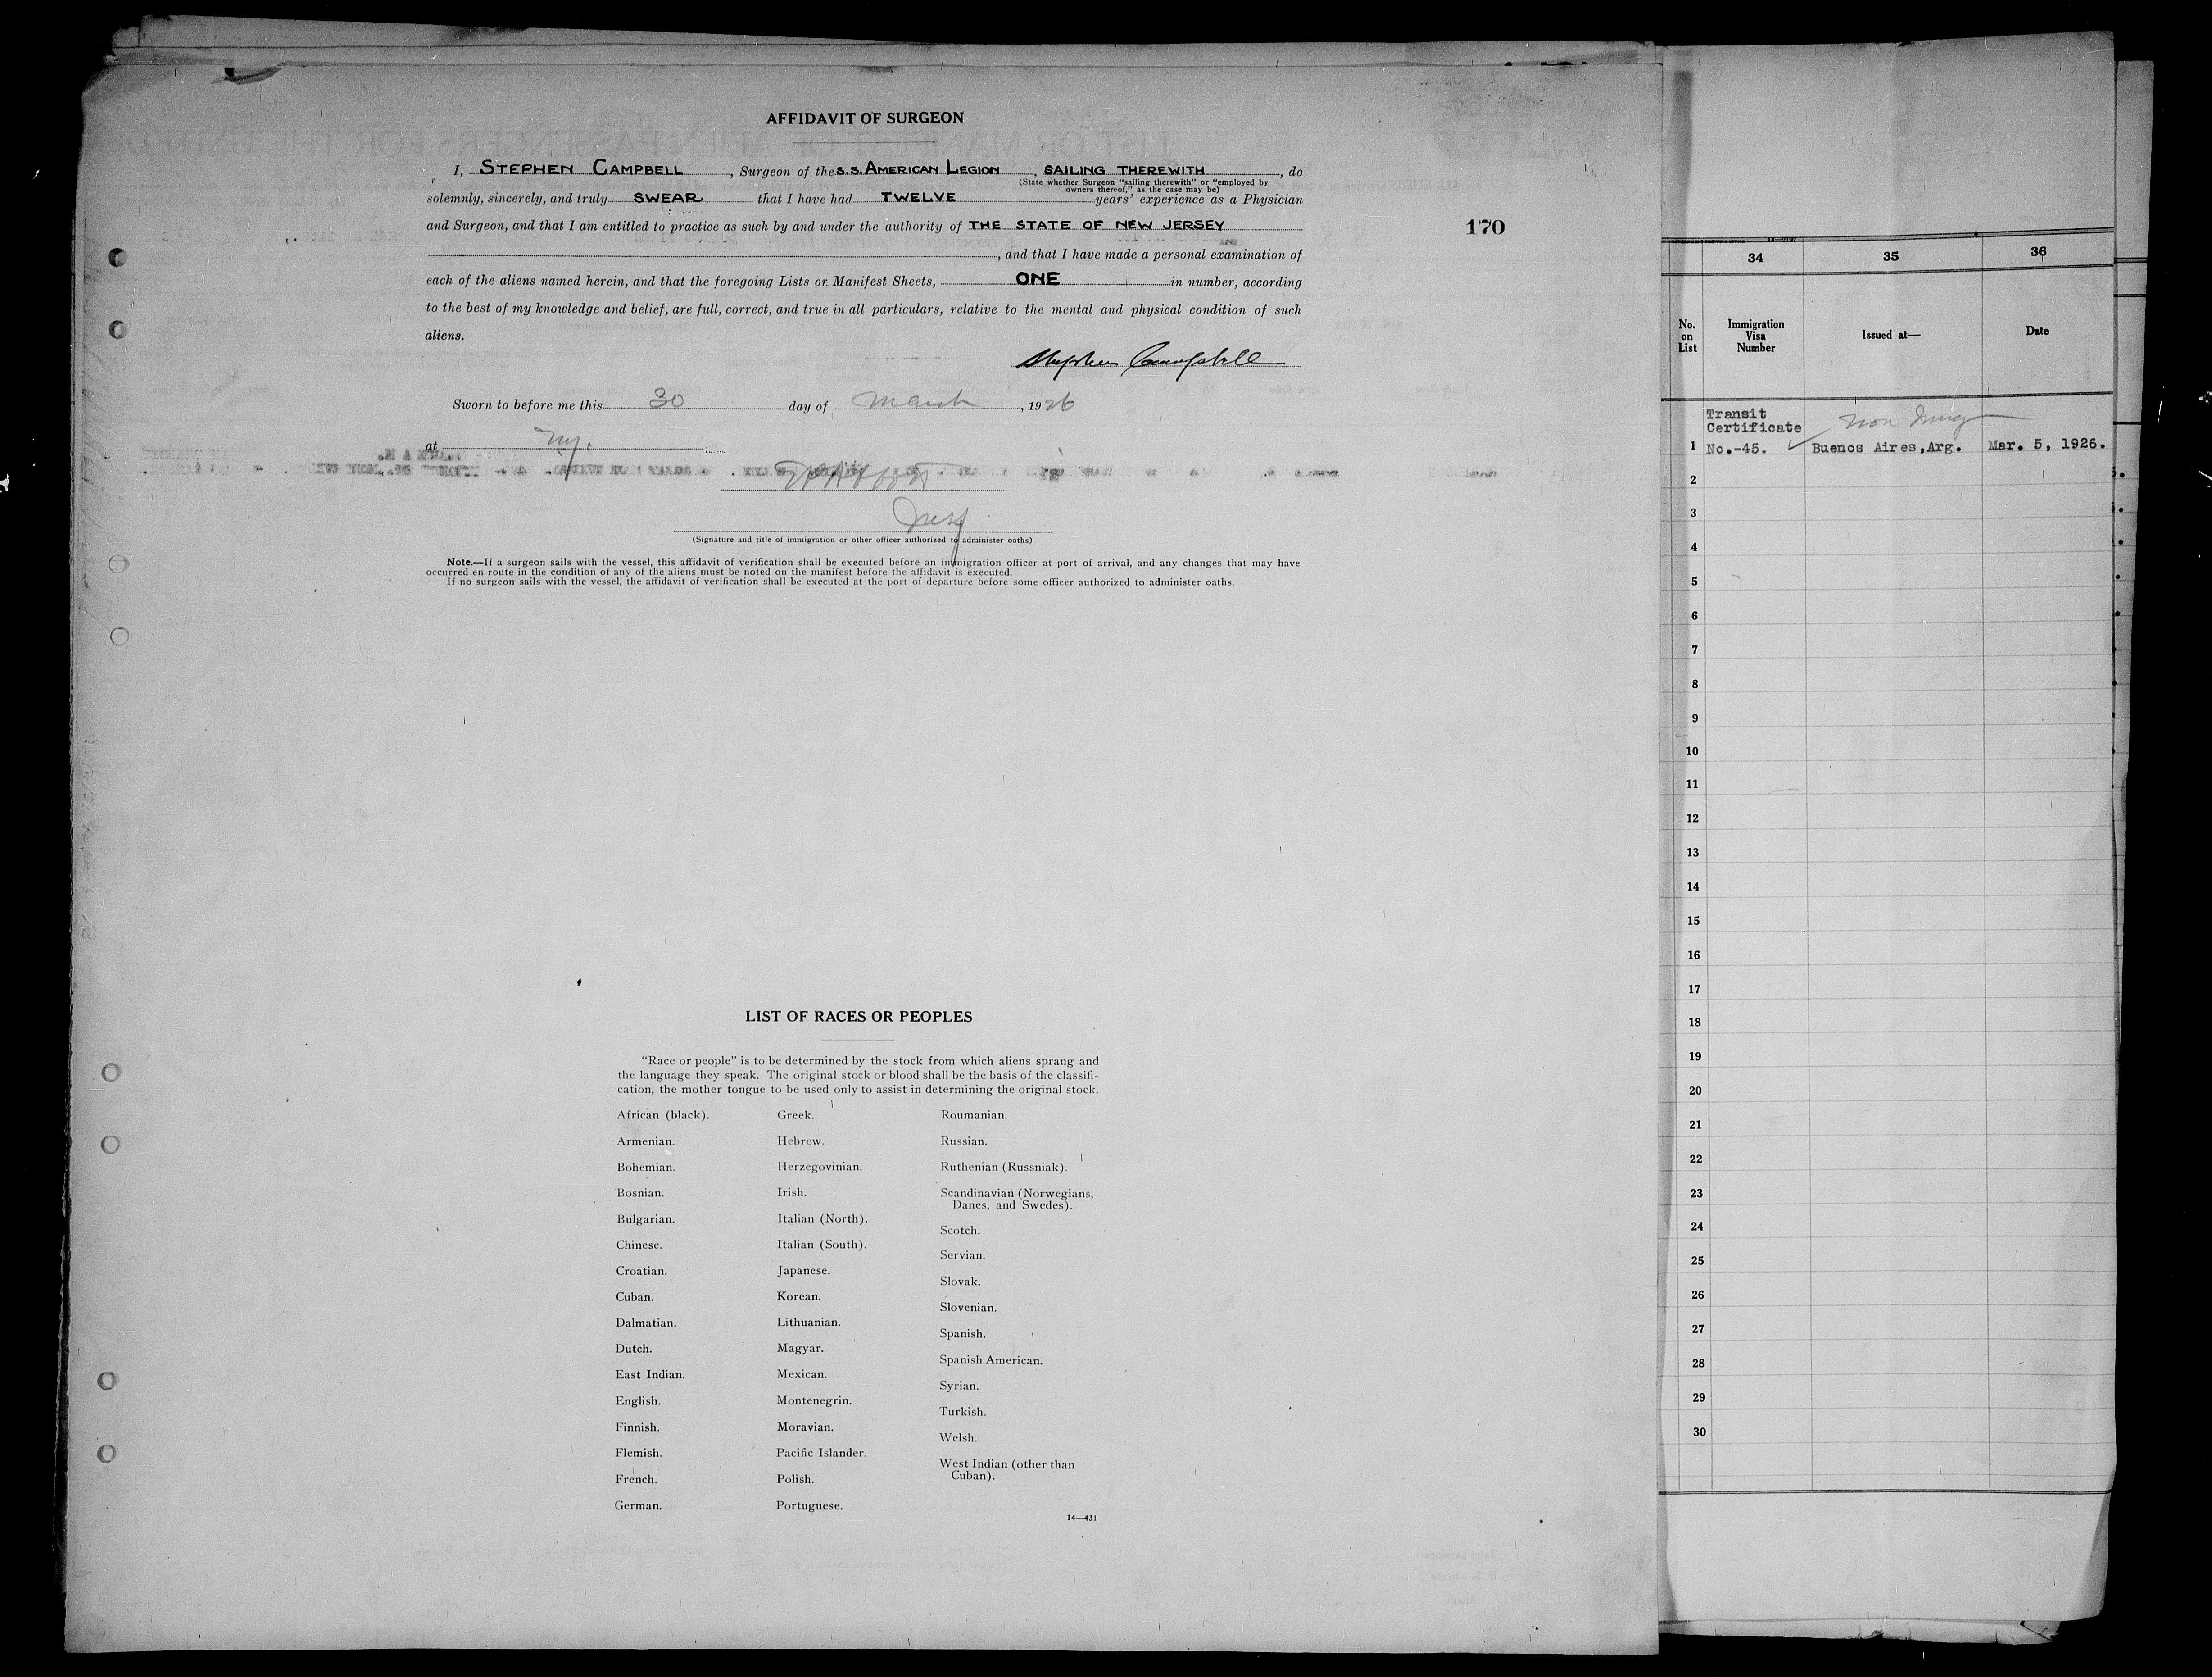 AFFIDAVIT OF SURGEON
I, STEPHEN CAMPBELL, Surgeon of the S.S. AMERICAN LEGION, SAILING THEREWITH, do
(State whether Surgeon "sailing therewith" or "employed by
owners thereof," as the case may be)
solemnly, sincerely, and truly SWEAR that I have had TWELVE years' experience as a Physician
and Surgeon, and that I am entitled to practice as such by and under the authority of THE STATE OF NEW JERSEY
, and that I have made a personal examination of
each of the aliens named herein, and that the foregoing Lists or Manifest Sheets, ONE in number, according
to the best of my knowledge and belief, are full, correct, and true in all particulars, relative to the mental and physical condition of such
aliens.
Stephen Campbell
Sworn to before me this 30 day of March, 1926
at N.Y.
(Signature and title of immigration or other officer authorized to administer oaths)
Note.—If a surgeon sails with the vessel, this affidavit of verification shall be executed before an immigration officer at port of arrival, and any changes that may have
occurred en route in the condition of any of the aliens must be noted on the manifest before the affidavit is executed.
If no surgeon sails with the vessel, the affidavit of verification shall be executed at the port of departure before some officer authorized to administer oaths.
170
LIST OF RACES OR PEOPLES
"Race or people" is to be determined by the stock from which aliens sprang and
the language they speak. The original stock or blood shall be the basis of the classifi-
cation, the mother tongue to be used only to assist in determining the original stock.
African (black).
Armenian.
Bohemian.
Bosnian.
Bulgarian.
Chinese.
Croatian.
Cuban.
Dalmatian.
Dutch.
East Indian.
English.
Finnish.
Flemish.
French.
German.
Greek.
Hebrew.
Herzegovinian.
Irish.
Italian (North).
Italian (South).
Japanese.
Korean.
Lithuanian.
Magyar.
Mexican.
Montenegrin.
Moravian.
Pacific Islander.
Polish.
Portuguese.
Roumanian.
Russian.
Ruthenian (Russniak).
Scandinavian (Norwegians,
Danes, and Swedes).
Scotch.
Servian.
Slovak.
Slovenian.
Spanish.
Spanish American.
Syrian.
Turkish.
Welsh.
West Indian (other than
Cuban).
14—431
34 35 36
No.
on
List
Immigration
Visa
Number
Issued at—
Date
Transit
Certificate
1 No.-45. Buenos Aires,Arg. Mar. 5, 1926.
2
3
4
5
6
7
8
9
10
11
12
13
14
15
16
17
18
19
20
21
22
23
24
25
26
27
28
29
30